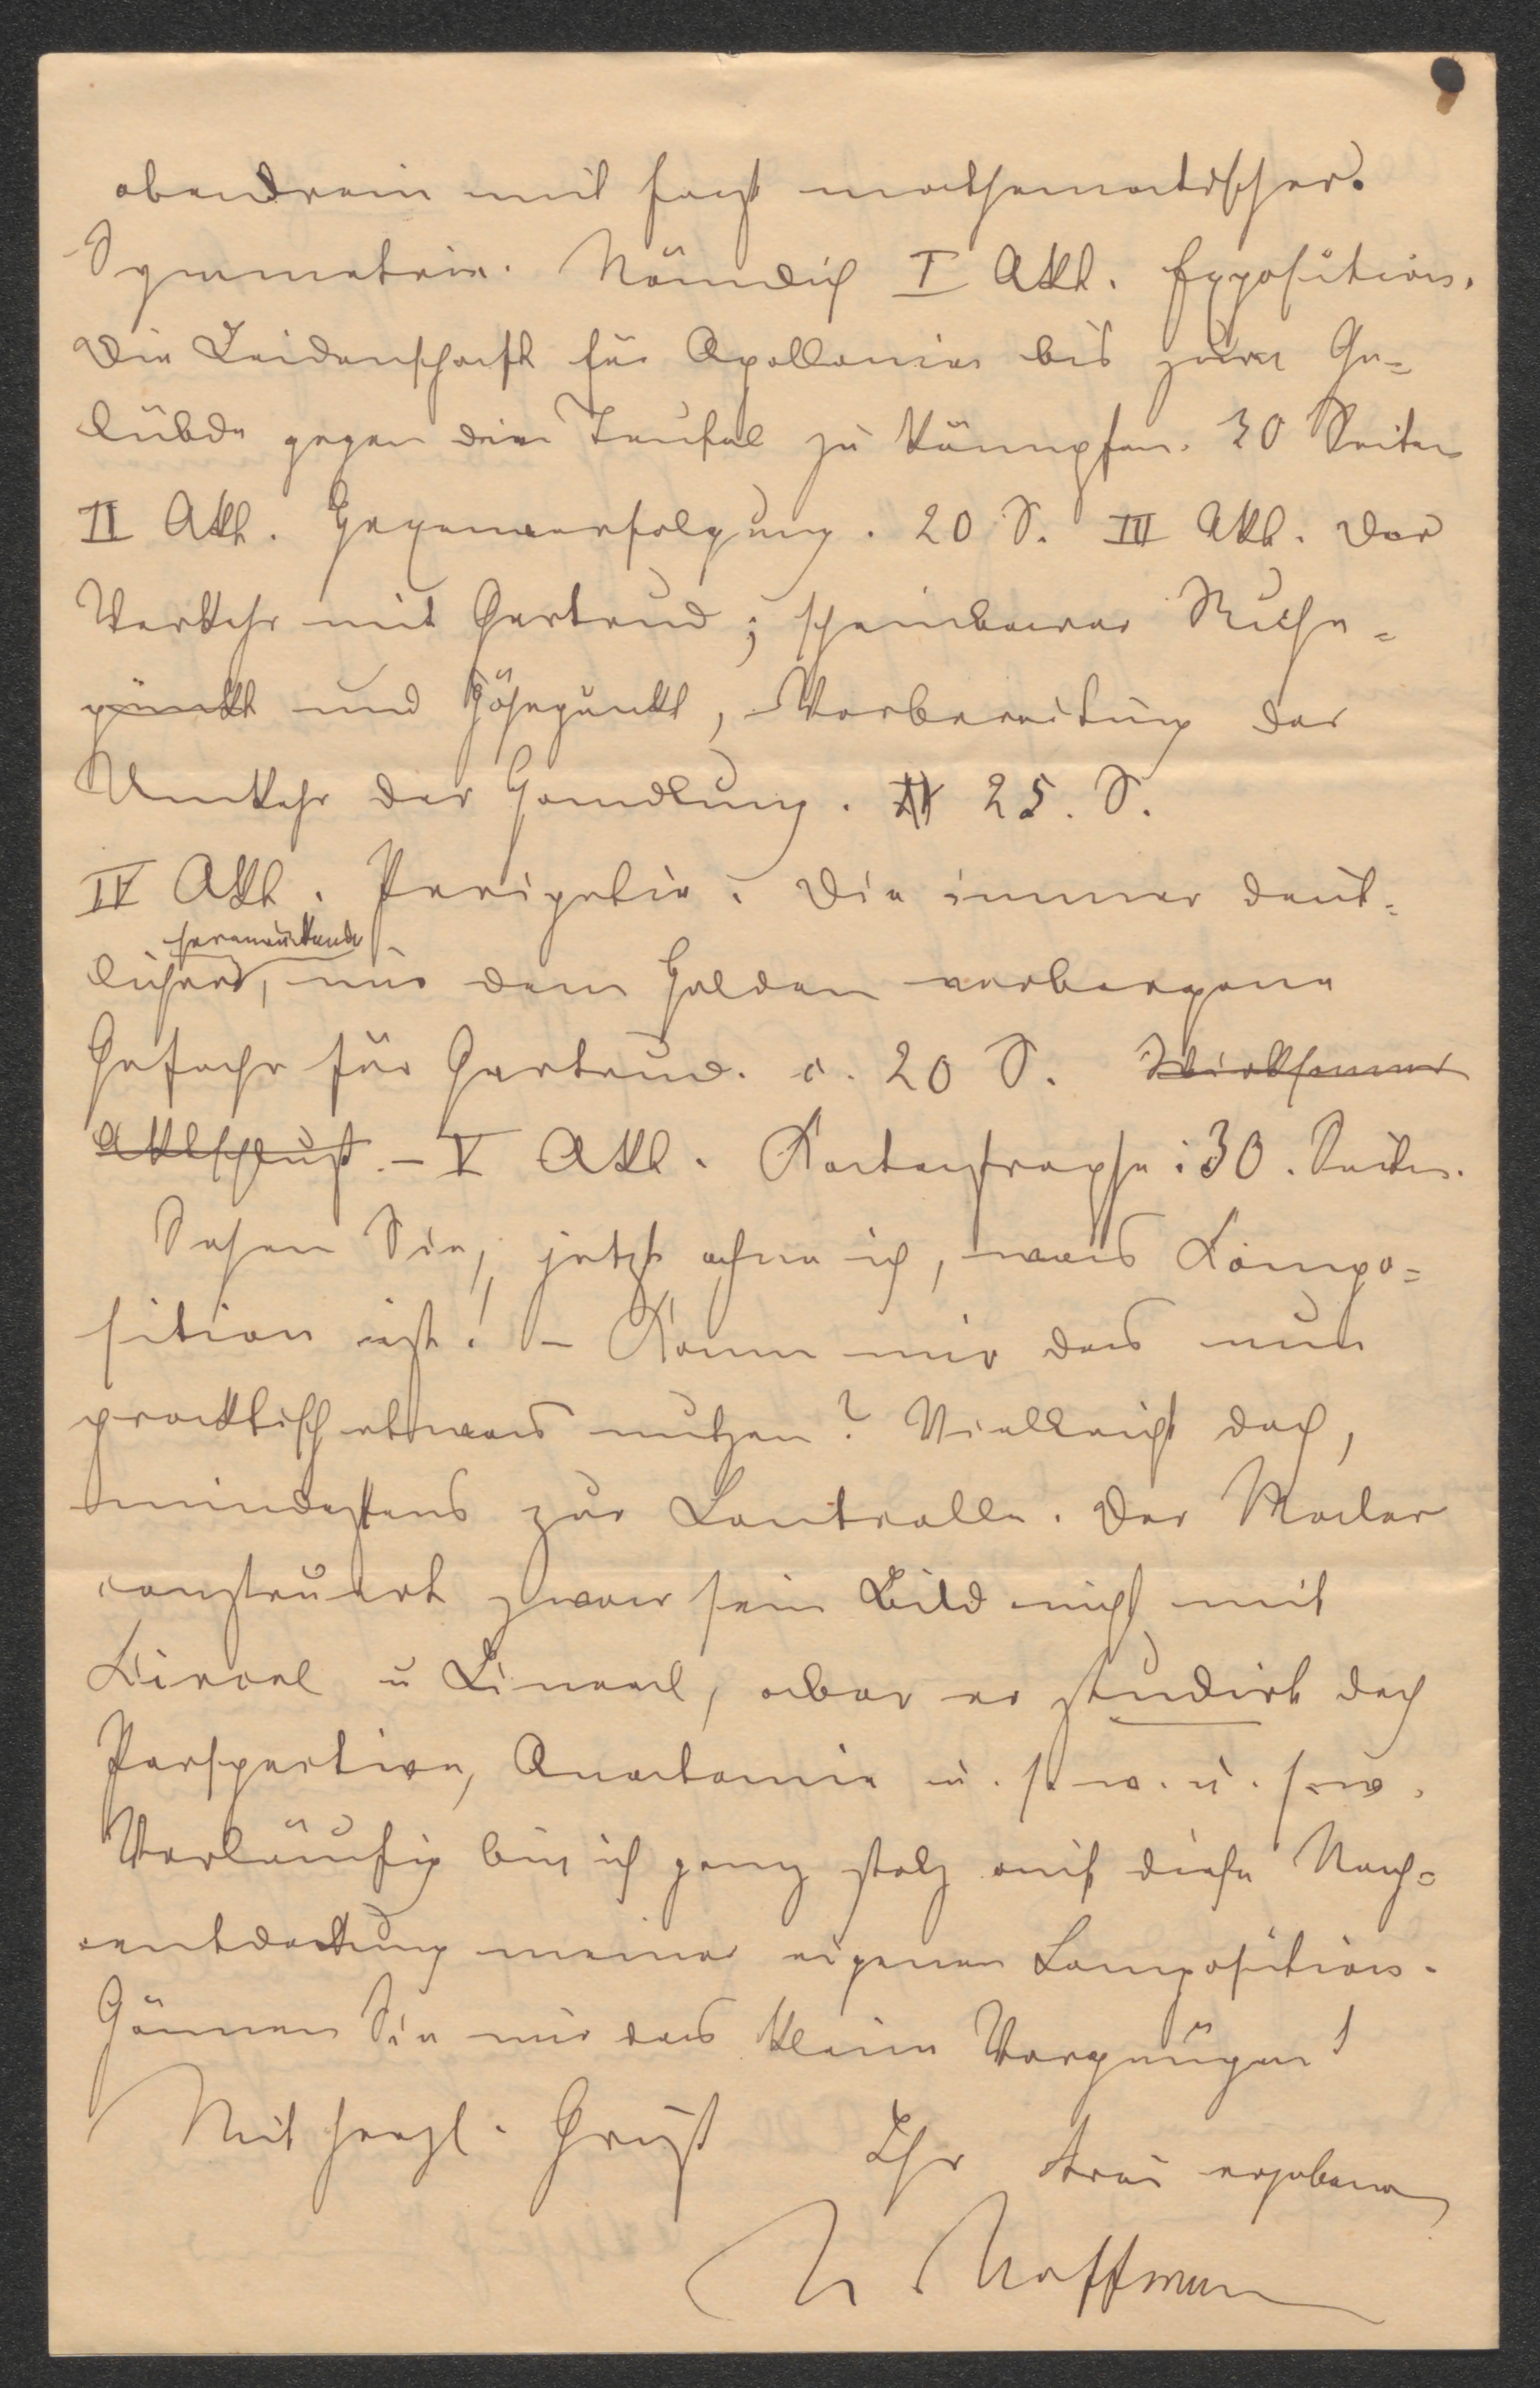 obendrein mit fast mathematischer
Symmetrie. Nämlich I Akt. Exposition.
Die Leidenschaft für Apollonia bis zum Ge=
lübde gegen den Teufel zu kämpfen. 30 Seiten
II Akt. Gegenverfolgung. 20 S. III Akt. Der
Verkehr mit Gertrud; scheinbarer Ruhe=
punkt und Höhepunkt, Vorbereitung der
Umkehr der Handlung. 25. S.
IV Akt. Peripetie. Die immer deut=
licher heranrückende, nur dem Helden verborgene
Gefahr für Gertrud. c. 20 S. Wirksamer
Aktschluß. – V Akt. Katastrophe: 30. Seiten.
Sehen Sie, jetzt ahne ich, was Compo=
sition ist! – Kann mir das nun
praktisch etwas nutzen? Vielleicht doch,
mindestens zur Controlle. Der Maler
construirt zwar sein Bild nicht mit
Circel u Lineal, aber er studirt doch
Perspective, Anatomie u. s. w. u. s. w.
Vorläufig bin ich ganz stolz auf diese Nach=
entdeckung meiner eigenen Composition.
Gönnen Sie mir das kleine Vergnügen!
Mit herzl. Gruß Ihr treu ergebener
Hoffmann